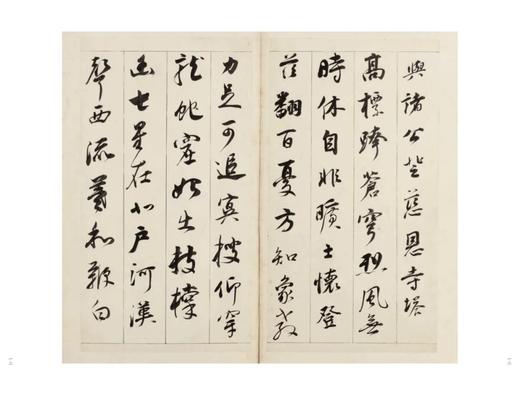 與諸公登慈恩寺塔
高標跨蒼穹烈風無
時休自非曠士懷登
茲翻百憂方知象教
力足可追冥搜仰穿
龍蛇窟始出枝撐
幽七星在北戶河漢
聲西流羲和鞭白